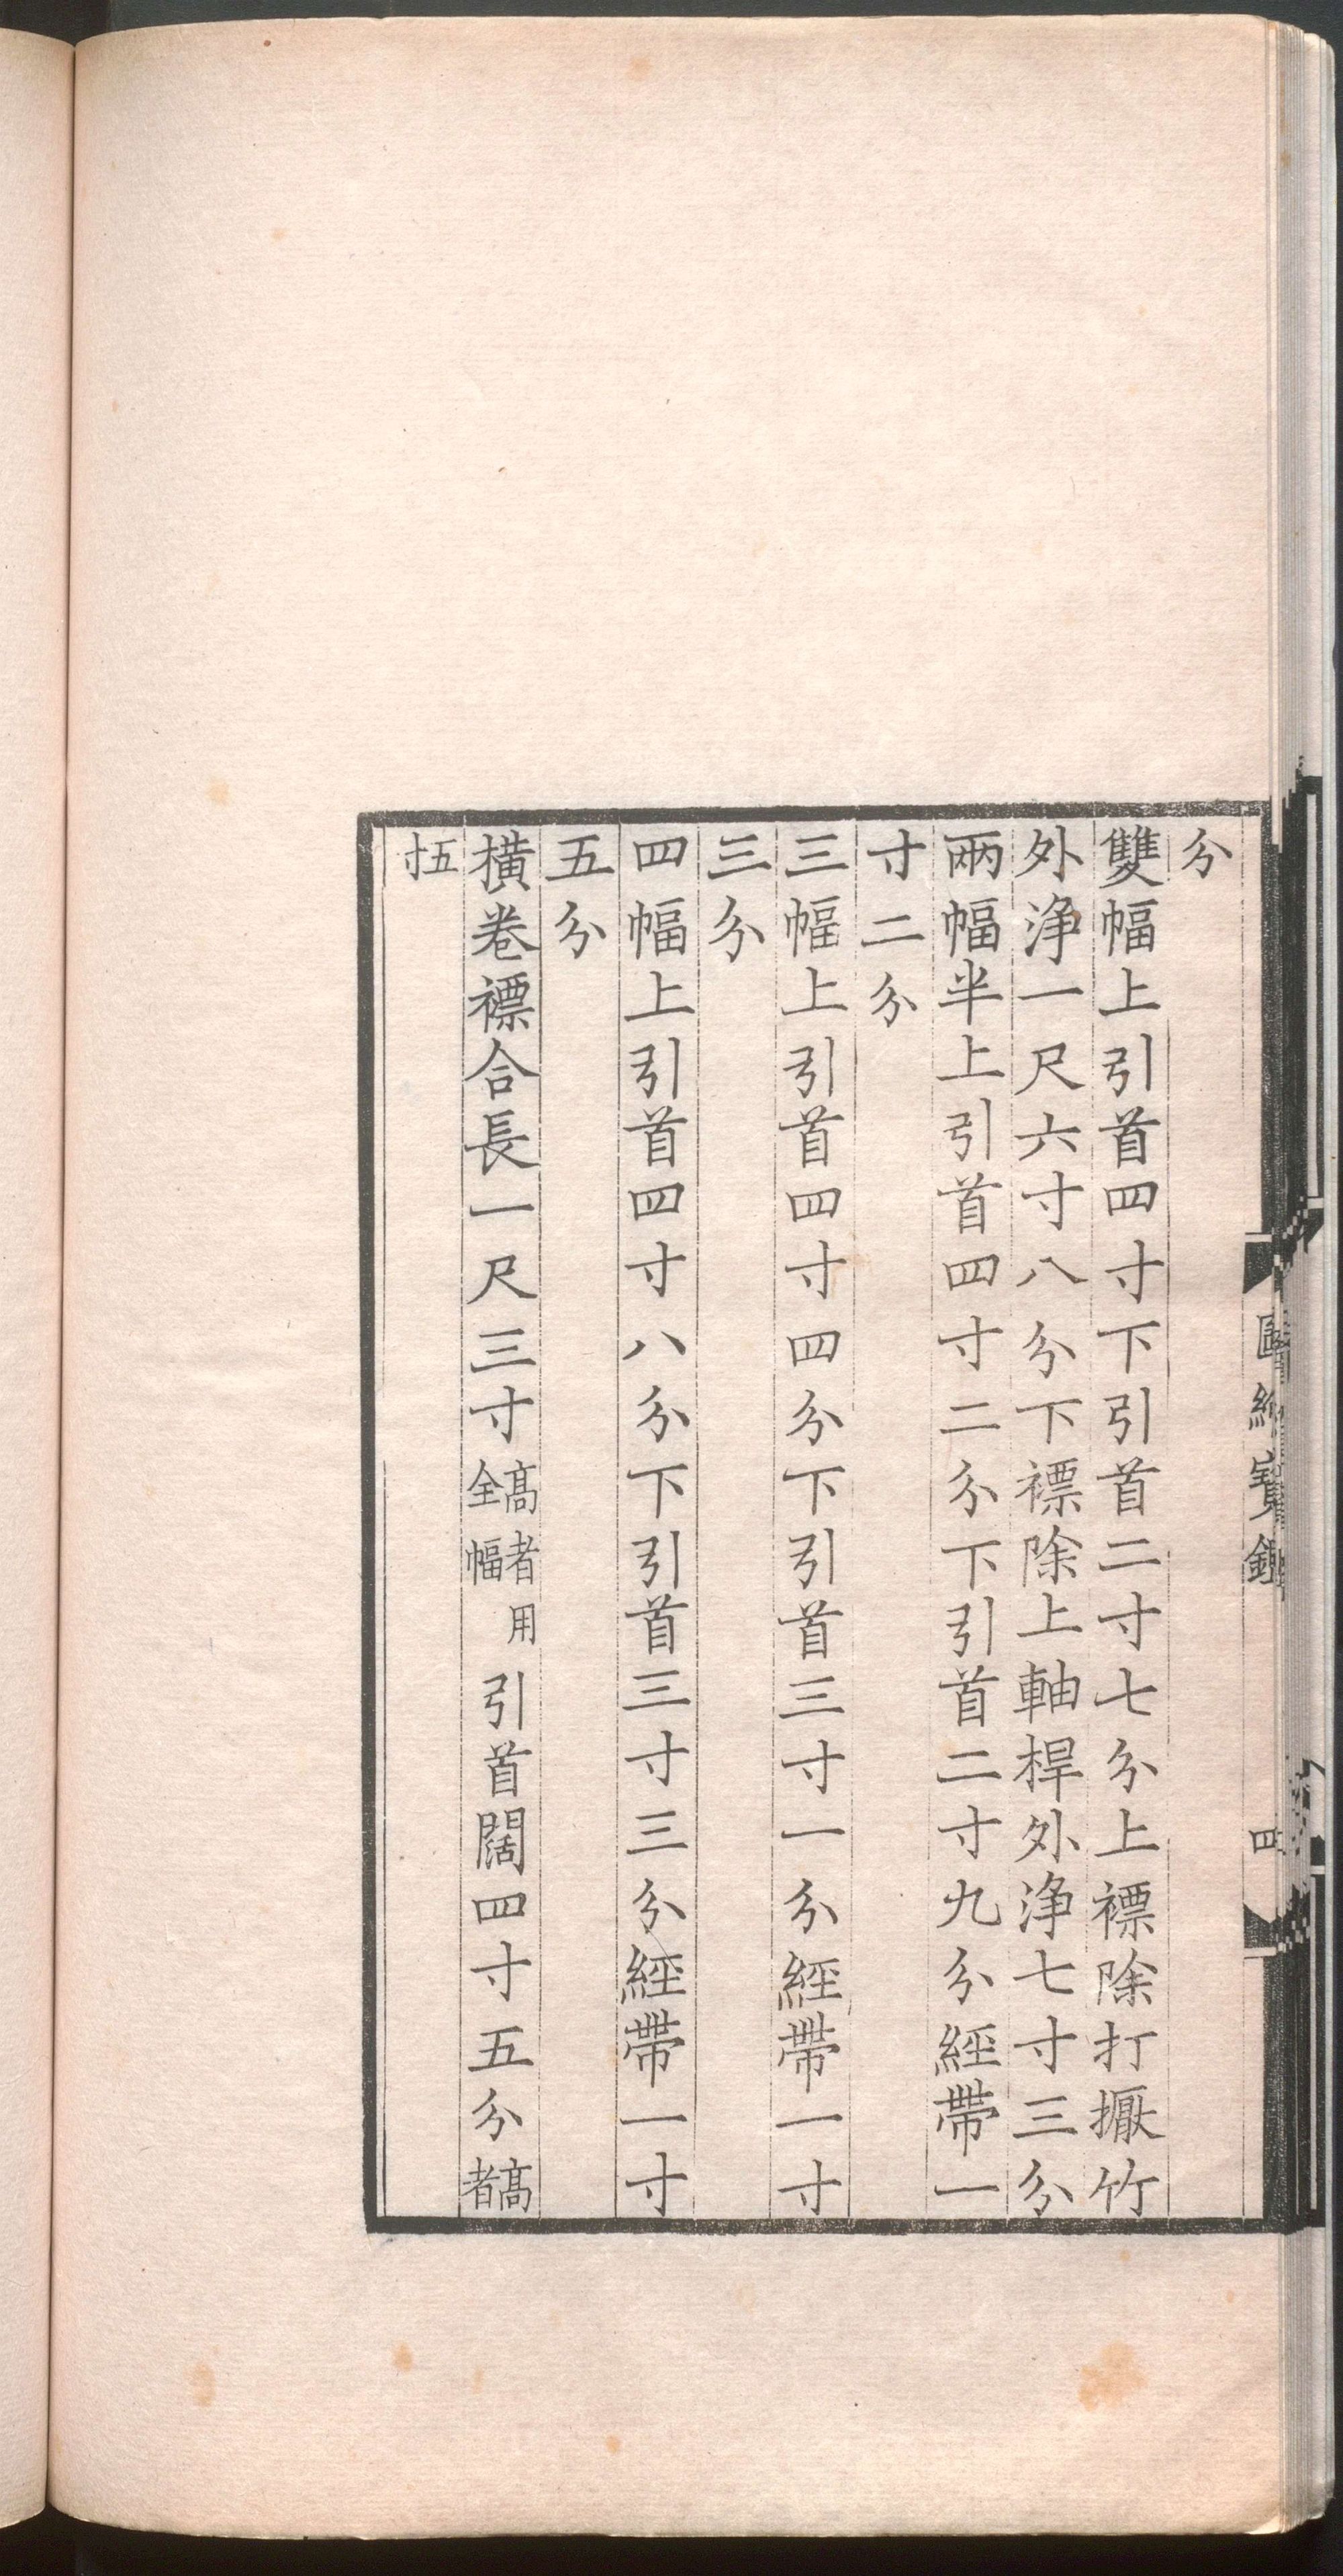 分
雙幅上引首四寸下引首二寸七分上褾除打擫竹
外浄一尺六寸八分下褾除上軸桿外浄七寸三分
兩幅半上引首四寸二分下引首二寸九分經帶一
寸二分
三幅上引首四寸四分下引首三寸一分經帶一寸
三分
四幅上引首四寸八分下引首三寸三分經帶一寸
五分
橫卷褾合長一尺三寸高者用全幅引首闊四寸五分高者
五寸
圖繪寶鑑
四